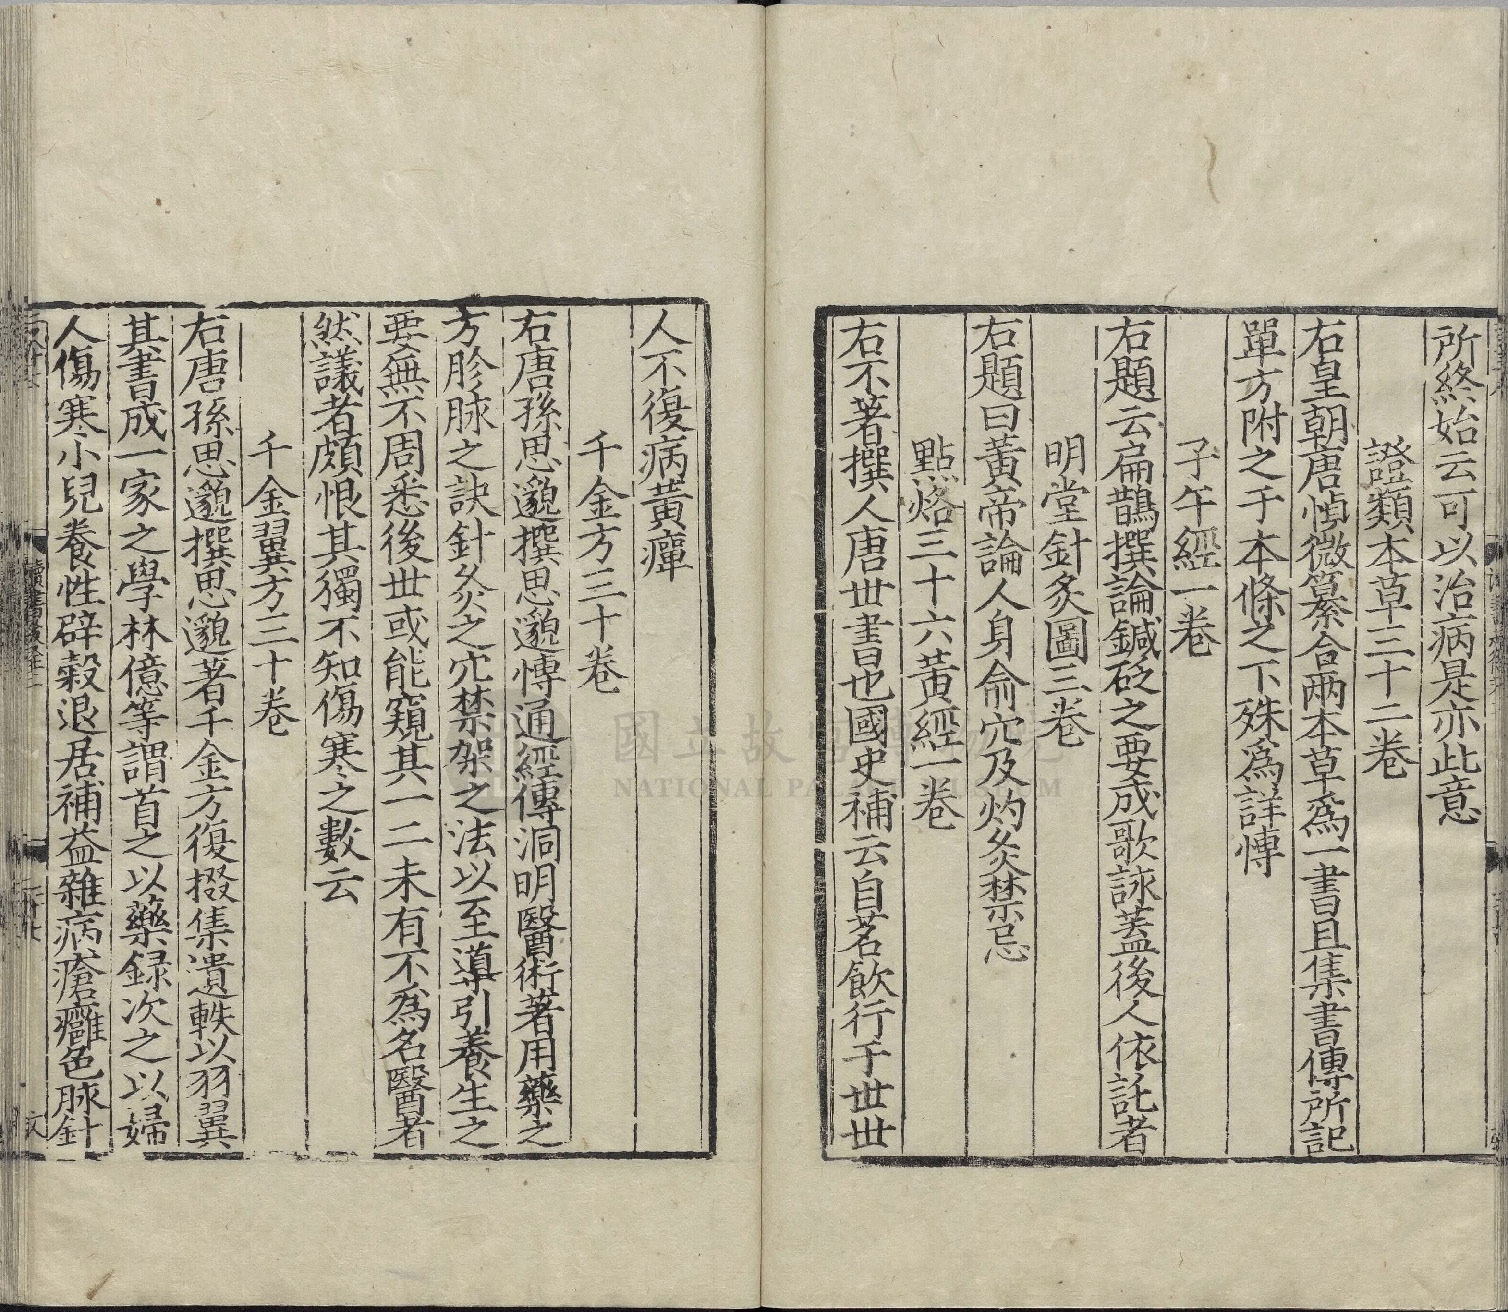 所終始云可以治病是亦此意
證類本草三十二卷
右皇朝唐慎微纂合兩本草爲一書且集書傳所記
單方附之于本條之下殊爲詳愽
子午經一卷
右題云扁鵲撰論鍼砭之要成歌詠蓋後人依託者
明堂針灸圖三卷
右題曰黃帝論人身俞穴及灼灸禁忌
點烙三十六黃經一卷
右不著撰人唐世書也國史補云自茗飲行于世世
人不復病黃癉
千金方三十卷
右唐孫思邈撰思邈愽通經傳洞明醫術著用藥之
方胗脉之訣針灸之穴禁架之法以至導引養生之
要無不周悉後世或能窺其一二未有不爲名醫者
然議者頗恨其獨不知傷寒之數云
千金翼方三十卷
右唐孫思邈撰思邈著千金方復掇集遺軼以羽翼
其書成一家之學林億等謂首之以藥録次之以婦
人傷寒小兒養性辟穀退居補益雜病瘡癰色脉針
國立故宮博物院
NATIONAL PALACE MUSEUM